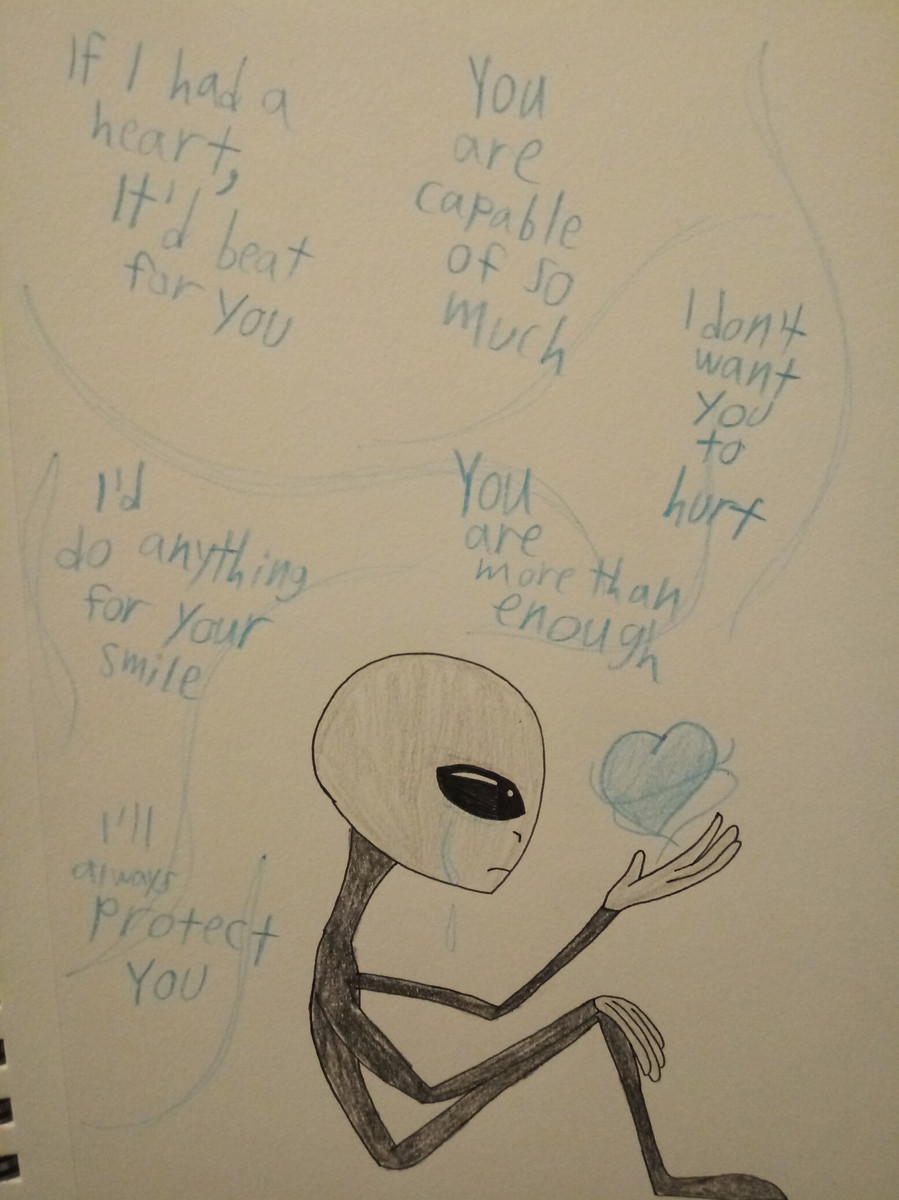 If I had a
heart,
It'd beat
for You
You
are
capable
of so
much
I don't
want
You
to
hurt
I'd
do anything
for your
smile
You
are
more than
enough
I'll
always
protect
You